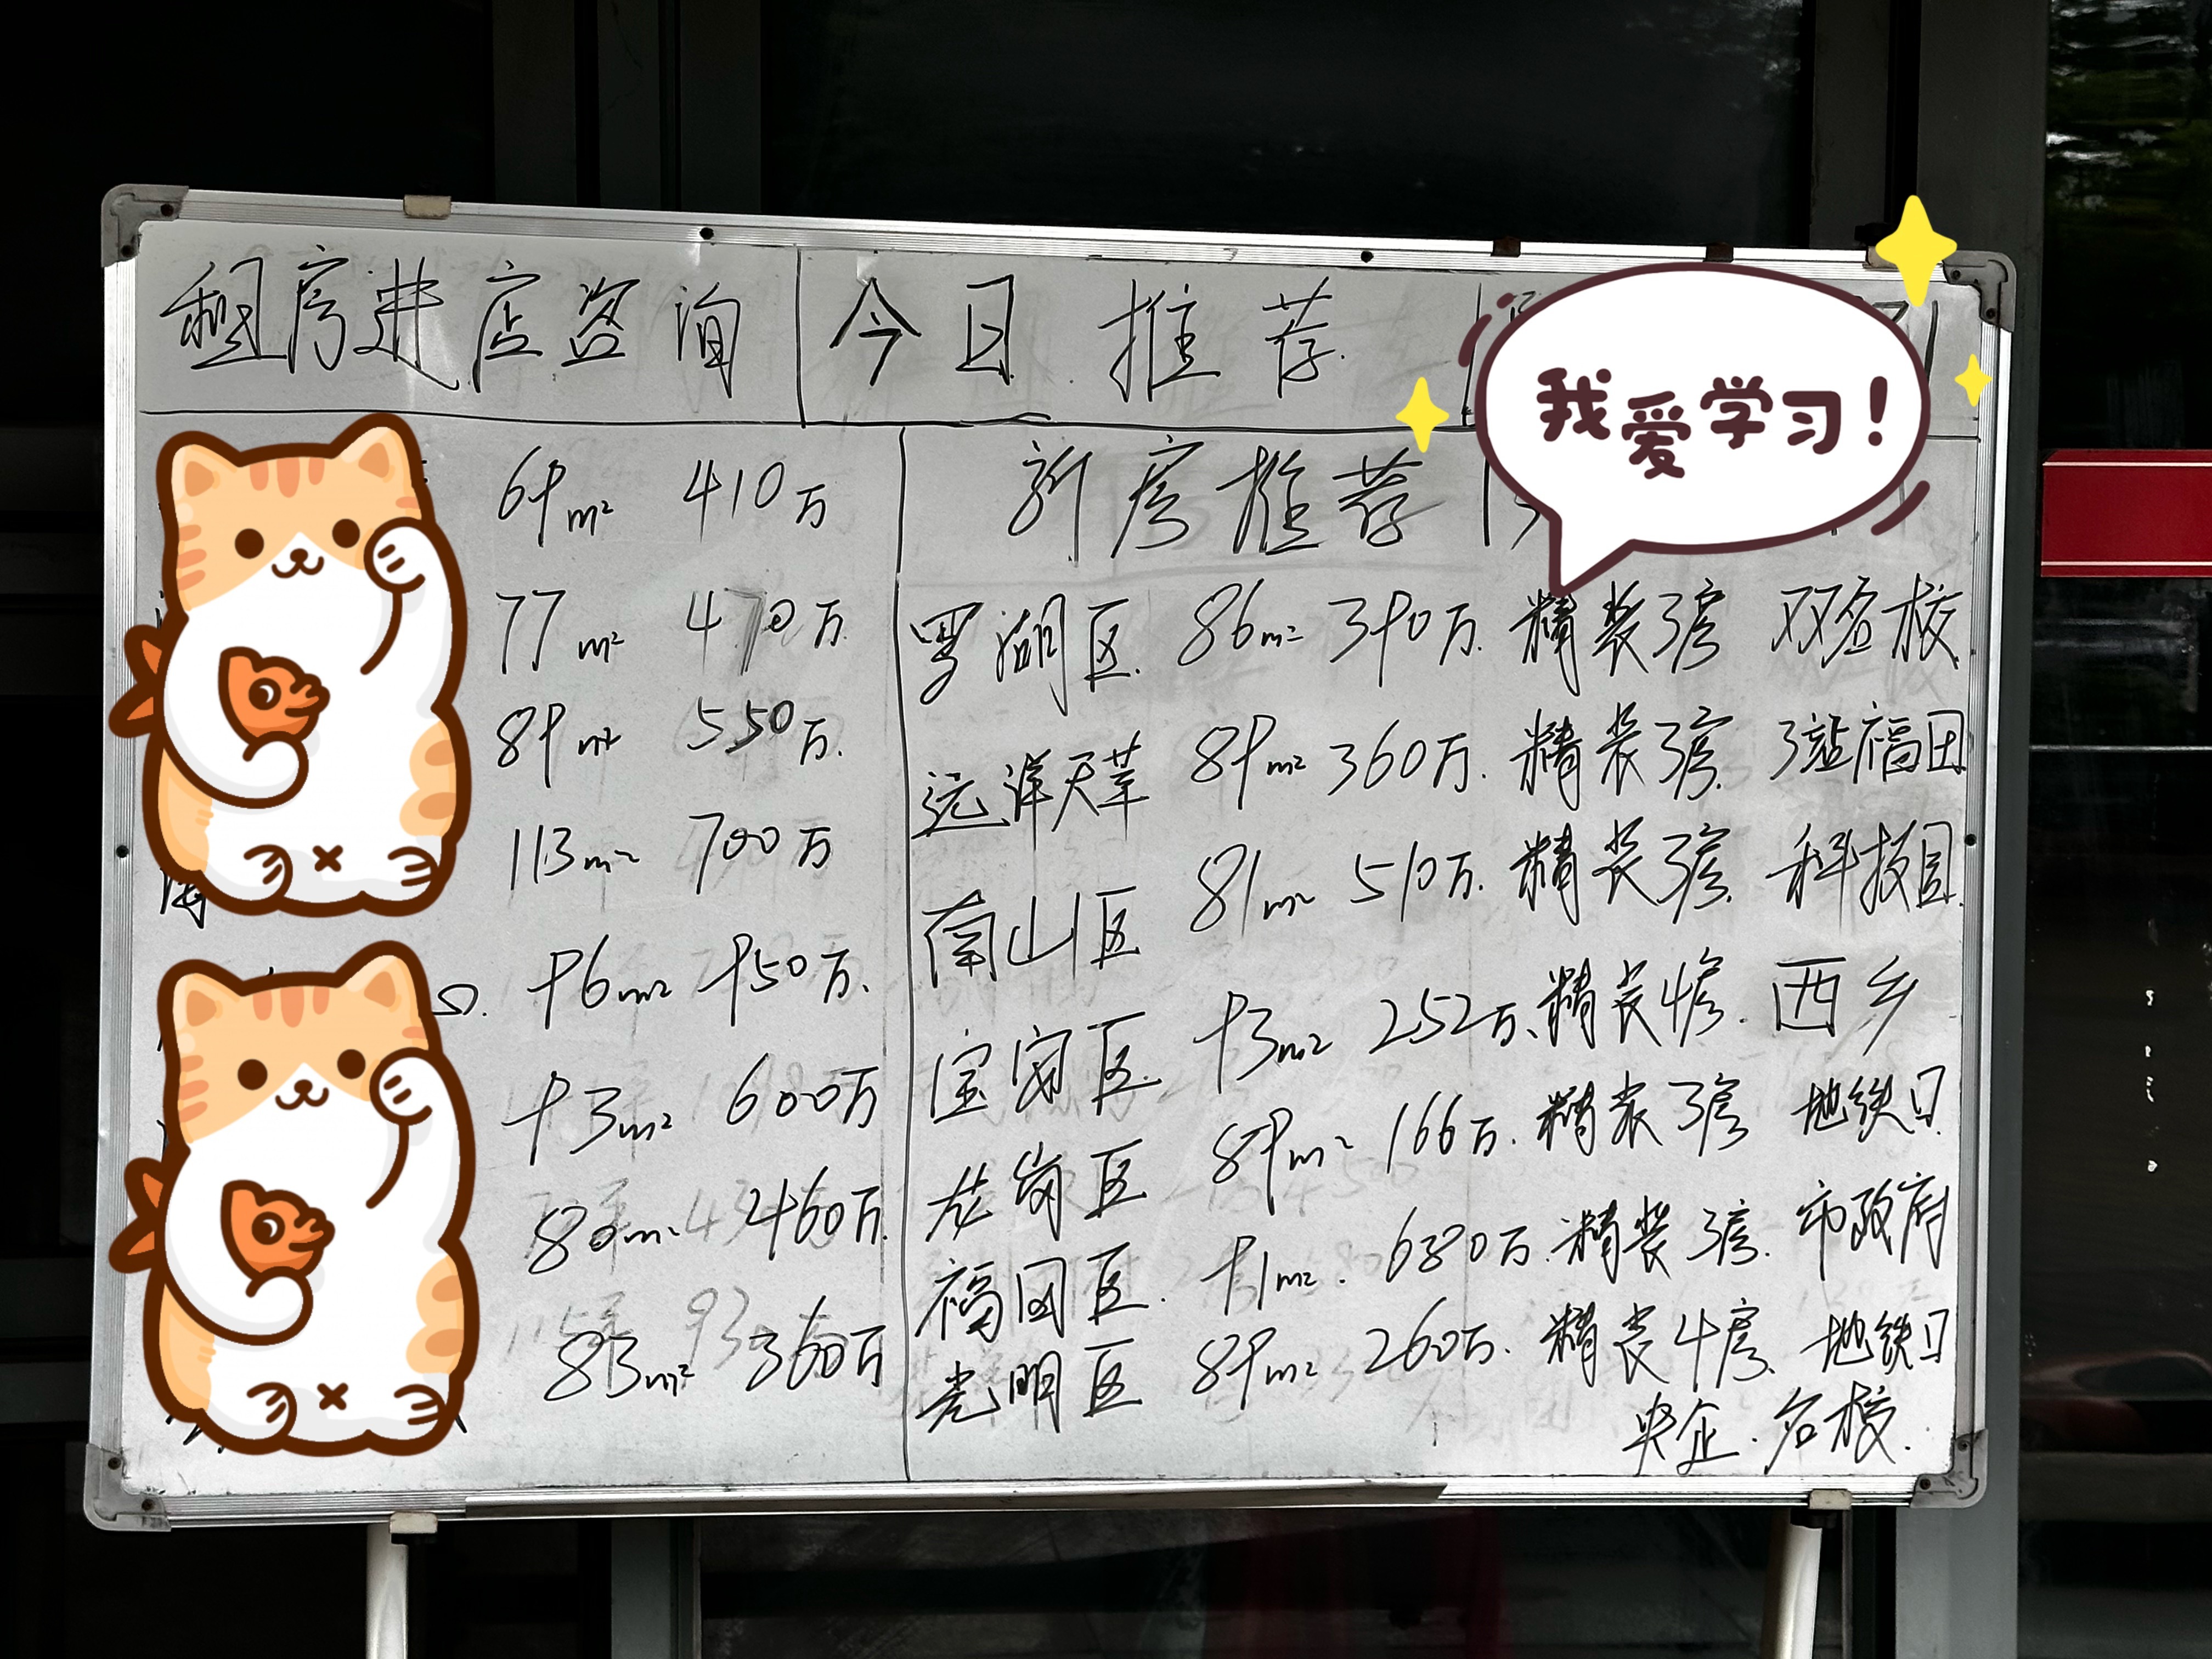 租房进店咨询 今日推荐
我爱学习!
69m² 410万
77m² 470万
89m² 550万.
113m² 700万
96m² 950万.
93m² 600万
80m² 460万
83m² 360万
新房推荐
罗湖区. 86m² 390万. 精装3房 双名校.
远洋天苹 89m² 360万. 精装3房. 3站福田
南山区 81m² 510万. 精装3房. 科技园.
宝安区. 93m² 252万. 精装4房. 西乡
龙岗区 89m² 166万. 精装3房 地铁口.
福田区. 91m². 680万. 精装3房. 市政府
光明区 89m² 260万. 精装4房. 地铁口
央企. 名校.